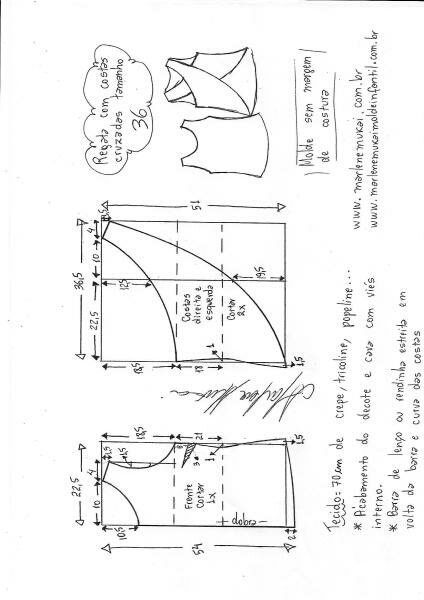 Regata com costas
cruzadas tamanho
36
Molde sem margem
de costura
www.marlenemukai.com.br
www.marlenemukaimoldeinfantil.com.br
36,5
22,5
10
4
1,5
51
12,5
18,5
18
1
19,5
1,5
Costas
direita e
esquerda
Cortar
2x
22,5
10
4
1,5
1,5
18,5
21
10,5
3
1
1,5
54
2
Frente
Cortar
1x
dobra
Tecido = 70 cm de crepe, tricoline, popeline...
* Acabamento do decote e cava com viés
interno.
* Barra de lenço ou rendinha estreita em
volta da barra e curva das costas